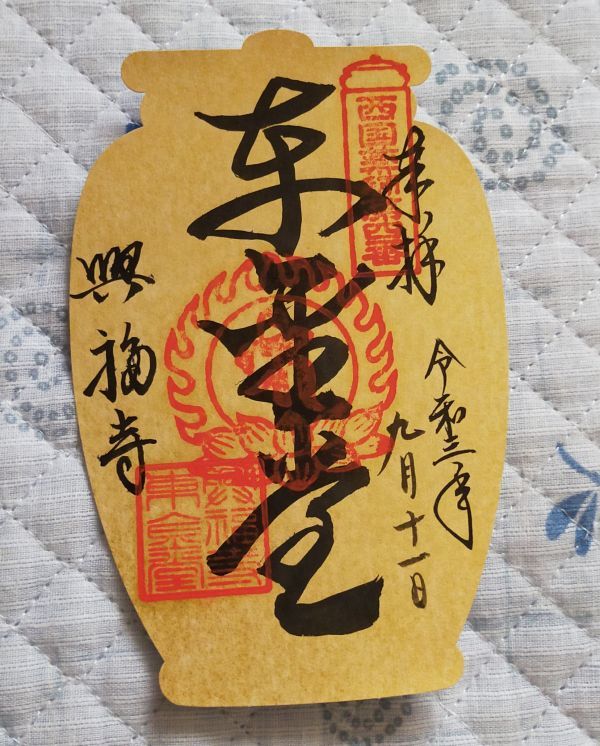 西国薬師第四番
奉拝
令和三年
九月十一日
東金堂
興福寺
興福寺
東金堂